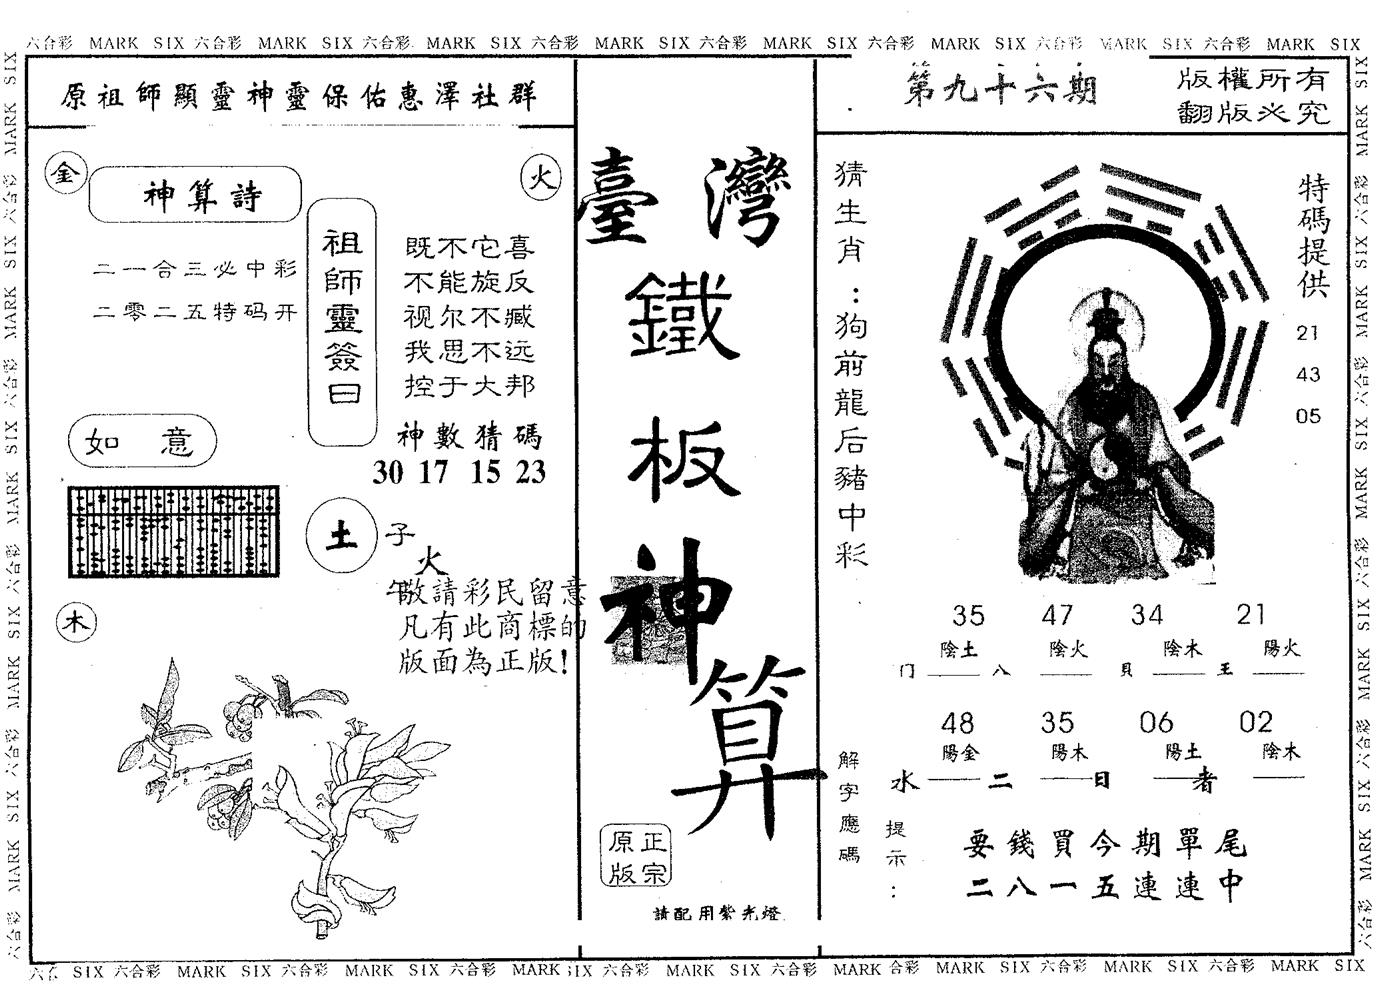 六合彩 MARK SIX 六合彩 MARK SIX 六合彩 MARK SIX 六合彩 MARK SIX 六合彩 MARK SIX 六合彩 MARK SIX 六合彩 MARK SIX 六合彩 MARK SIX
原祖師顯靈神靈保佑惠澤社群
金
火
神算詩
二一合三必中彩
二零二五特码开
祖師靈簽曰
既不它喜
不能旋反
视尔不臧
我思不远
控于大邦
神數猜碼
30 17 15 23
如意
土
子
火
午
敬請彩民留意
凡有此商標的
版面為正版!
木
臺灣
鐵
板
神
算
正宗
原版
請配用紫光燈
第九十六期
版權所有
翻版必究
猜生肖:狗前龍后豬中彩
特碼提供
21
43
05
35 47 34 21
陰土 陰火 陰木 陽火
门 八 貝 王
48 35 06 02
陽金 陽木 陽土 陰木
水 二 日 者
解字應碼
提示:
要錢買今期單尾
二八一五連連中
SIX 六合彩 MARK SIX 六合彩 MARK SIX 六合彩 MARK SIX 六合彩 MARK SIX 六合彩 MARK 合彩 MARK SIX 六合彩 MARK SIX 六合彩 MARK SIX